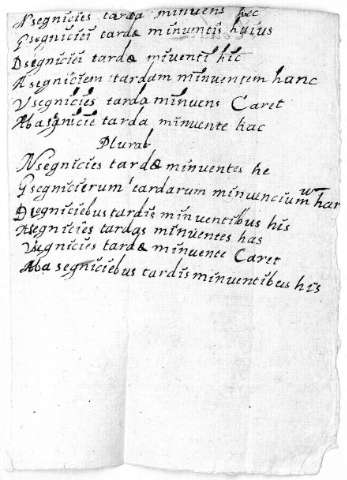 N segnicies tarda minuens hec
G segniciei tardæ minuentis huius
D segniciei tardæ minuenti hic
A segniciem tardam minuentem hanc
V segnicies tarda minuens Caret
Aba segnicie tarda minuente hac
Plurab
N segnicies tardæ minuentes he
G segnicierum tardarum minuencium har
D segniciebus tardis minuentibus his
A segnicies tardas minuentes has
V segnicies tardæ minuente Caret
Aba segniciebus tardis minuentibus his